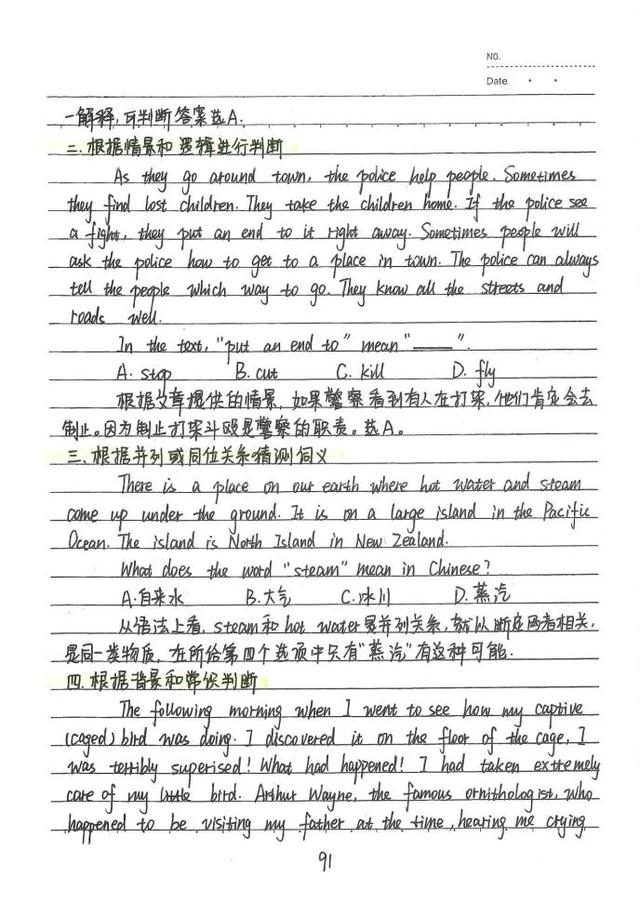 NO.
Date
一解释,可判断答案选A.
二.根据情景和逻辑进行判断
As they go around town, the police help people. Sometimes
they find lost children. They take the children home. If the police see
a fight, they put an end to it right away. Sometimes people will
ask the police how to get to a place in town. The police can always
tell the people which way to go. They know all the streets and
roads well.
In the text, "put an end to" mean "____".
A. stop B. cut C. kill D. fly
根据文章提供的情景,如果警察看到有人在打架,他们肯定会去
制止。因为制止打架斗殴是警察的职责。选A。
三.根据并列或同位关系猜测词义
There is a place on our earth where hot water and steam
come up under the ground. It is on a large island in the Pacific
Ocean. The island is North Island in New Zealand.
What does the word "steam" mean in Chinese?
A.自来水 B.大气 C.冰川 D.蒸汽
从语法上看,steam和hot water是并列关系,就以断定两者相关,
是同一类物质,在所给第四个选项中只有"蒸汽"有这种可能.
四.根据背景和常识判断
The following morning when I went to see how my captive
(caged) bird was doing. I discovered it on the floor of the cage, I
was terribly superised! What had happened! I had taken extremely
care of my little bird. Arthur Wayne, the famous ornithologist, who
happened to be visiting my father at the time, hearing me crying
91